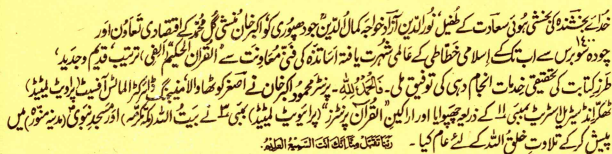 خدائے بخشندہ کی بخشی ہوئی سعادت کے طفیل، نورالدین آزاد خواجہ کمال الدین جودھپوری کو اکبر خان منشی گل محمد کے اقتصادی تعاون اور
۱۴۰۰ سو برس سے اب تک کے اسلامی خطاطی کے عالمی شہرت یافتہ اساتذہ کی فنی معاونت سے القرآن الحکیم الفی، ترتیب قدیم و جدید،
طرزِ کتابت کی تحقیقی خدمات انجام دہی کی توفیق ملی۔ فالحمدللہ۔ پرنٹر محمود اکبر خان نے اصغر کوٹھا والا منیجنگ ڈائریکٹر الماس آفسیٹ (پرائیویٹ لمیٹڈ)
انڈسٹریل اسٹریٹ بمبئی ۱۱ کے ذریعہ چھپوایا اور اراکین "القرآن پرنٹرز" (پرائیوٹ لمیٹڈ) بمبئی ۳ نے بیت اللہ (مکہ مکرمہ) اور مسجد نبوی (مدینہ منورہ) میں
پیش کر کے تلاوتِ خلق اللہ کے لئے عام کیا۔ ربنا تقبل منا انک انت السمیع العلیم۔